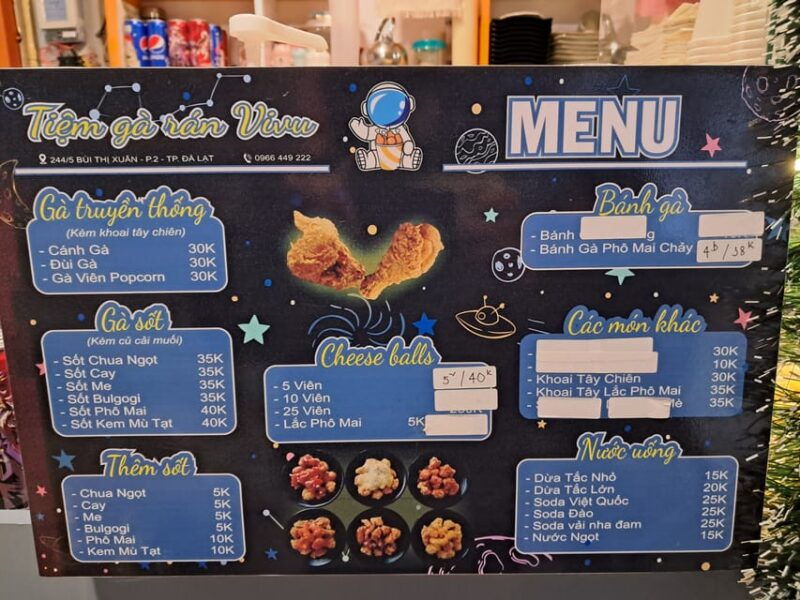 Tiệm gà rán Vivu
244/5 BÙI THỊ XUÂN - P.2 - TP. ĐÀ LẠT
0966 449 222
MENU
Gà truyền thống
(Kèm khoai tây chiên)
- Cánh Gà 30K
- Đùi Gà 30K
- Gà Viên Popcorn 30K
Gà sốt
(Kèm củ cải muối)
- Sốt Chua Ngọt 35K
- Sốt Cay 35K
- Sốt Me 35K
- Sốt Bulgogi 35K
- Sốt Phô Mai 40K
- Sốt Kem Mù Tạt 40K
Thêm sốt
- Chua Ngọt 5K
- Cay 5K
- Me 5K
- Bulgogi 5K
- Phô Mai 10K
- Kem Mù Tạt 10K
Cheese balls
- 5 Viên 5v/40k
- 10 Viên
- 25 Viên
- Lắc Phô Mai 5K
Bánh gà
- Bánh
- Bánh Gà Phô Mai Chảy 4b/38k
Các món khác
- 30K
- 10K
- Khoai Tây Chiên 30K
- Khoai Tây Lắc Phô Mai 35K
- 35K
Nước uống
- Dừa Tắc Nhỏ 15K
- Dừa Tắc Lớn 20K
- Soda Việt Quốc 25K
- Soda Đào 25K
- Soda vải nha đam 25K
- Nước Ngọt 15K
pepsi